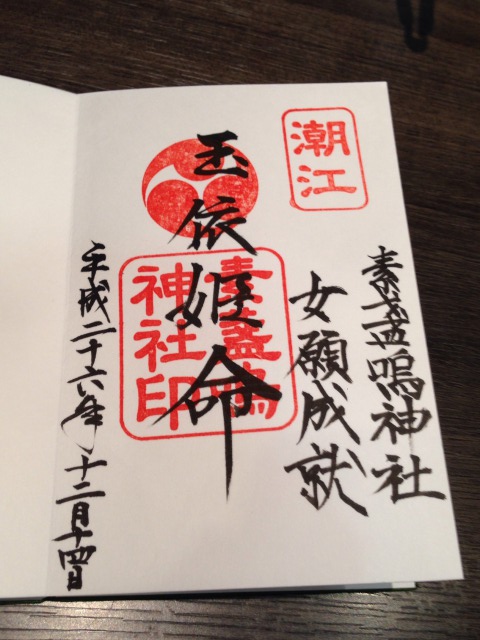 潮江
素盞嗚神社
女願成就
玉依姫命
素盞嗚
神社印
平成二十六年十二月十四日